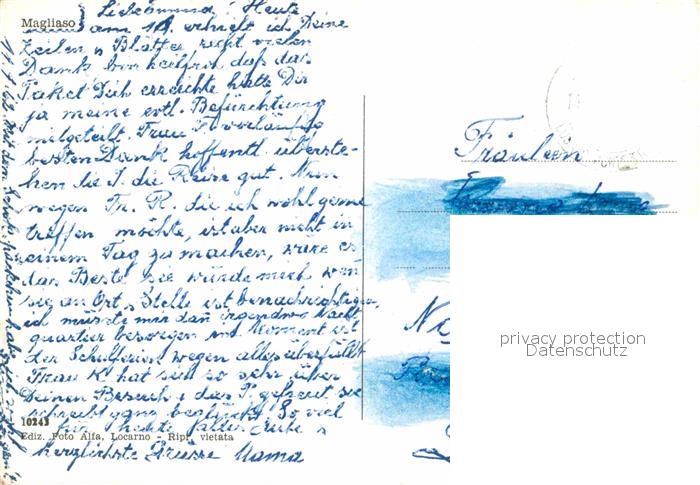 Magliaso
Heute
am 10. erhielt ich Deine
Zeilen u. Blätter recht vielen
Dank bin heilfroh daß das
Paket Dich erreichte hatte Dir
ja meine evtl. Befürchtung
mitgeteilt. Frau F. vorläufig
besten Dank hoffentl. überste-
hen Sie die Reise gut. Nun
wegen Fr. R. die ich wohl gerne
treffen möchte, ist aber nicht in
einem Tag zu machen, wäre es
das Beste sie würde mich wen
sie an Ort u. Stelle ist benachrichtigen,
ich müsste mir dan irgendwo Nacht
quartier besorgen im Moment ist
der Schulferien wegen alles überfüllt
Frau K. hat sich so sehr über
Deinen Besuch u. das P. gefreut, sie
schreibt ganz beglückt. So viel
für heute alles Gute u.
herzlichste Grüsse Mama
10243
Ediz. Foto Alfa, Locarno - Ripr. vietata
Fräulein
privacy protection
Datenschutz